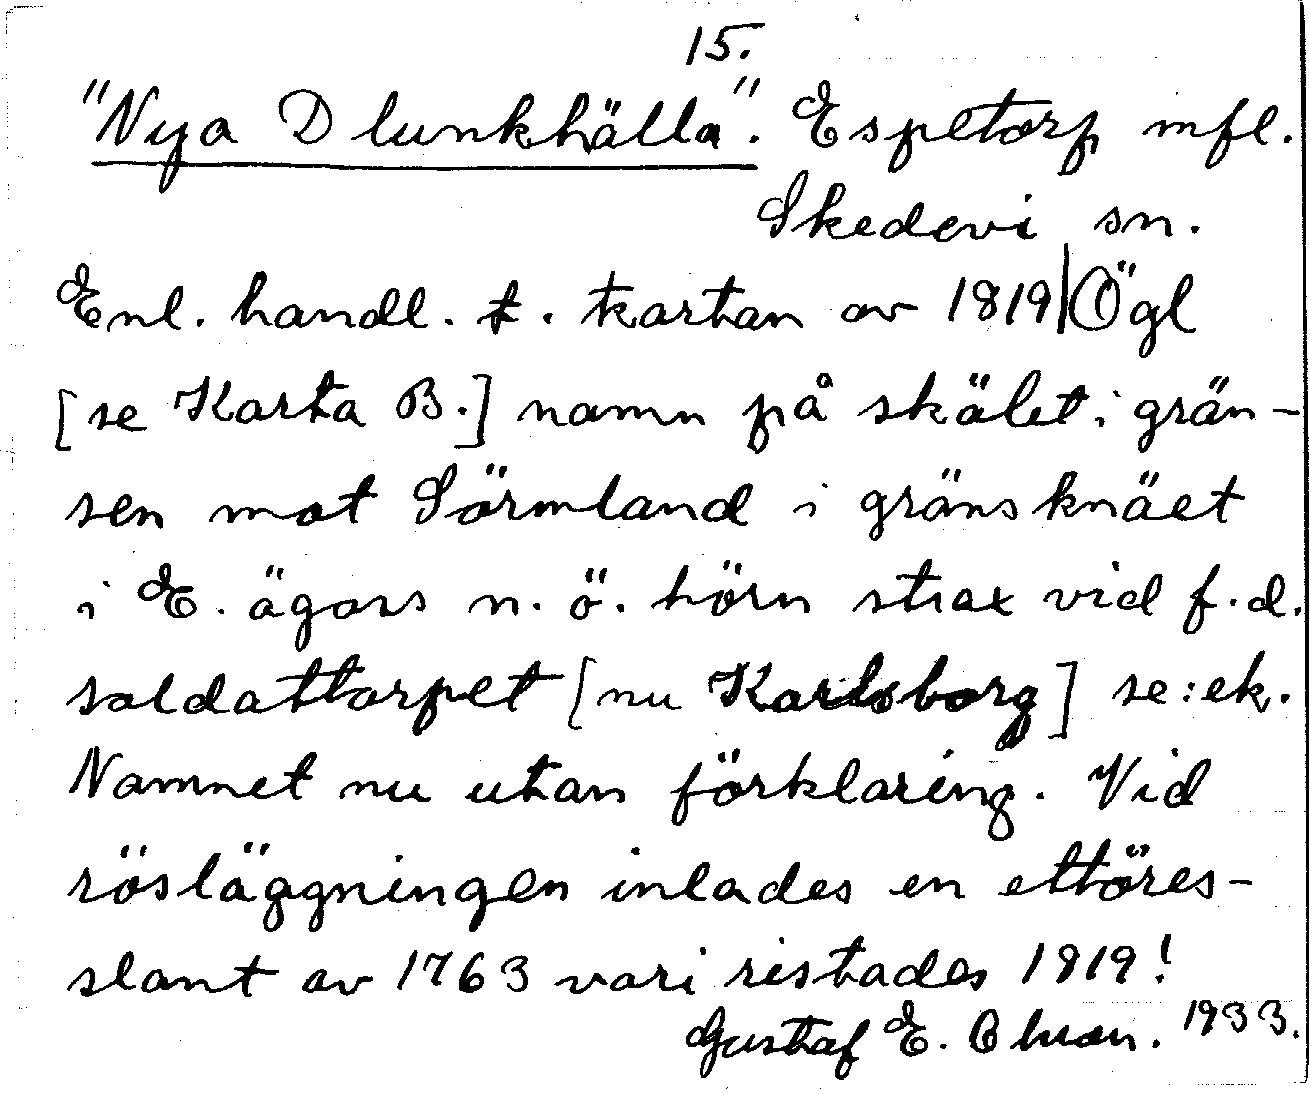 15.
"Nya Dlunkhälla". Espetorp mfl.
Skedevi sn.
Enl. handl. t. kartan av 1819 | Ögl
[se Karta B.] namn på skälet i grän-
sen mot Sörmland i gränsknäet
i E. ägors n. ö. hörn strax vid f.d.
soldattorpet [nu Karlsborg] se: ek.
Namnet nu utan förklaring. Vid
rösläggningen inlades en ettöres-
slant av 1763 vari ristades 1819!
Gustaf E. Ohman. 1933.